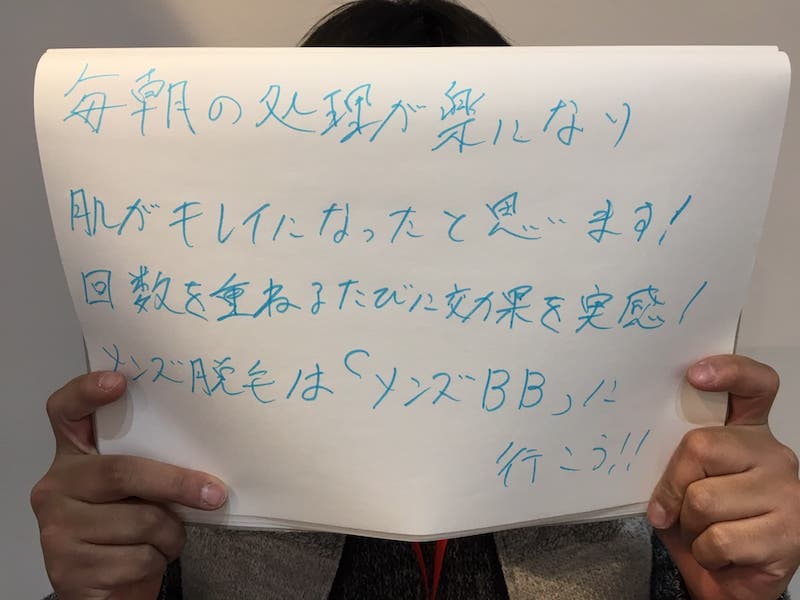 毎朝の処理が楽になり
肌がキレイになったと思います!
回数を重ねるたびに効果を実感!
メンズ脱毛は「メンズBB」に
行こう!!